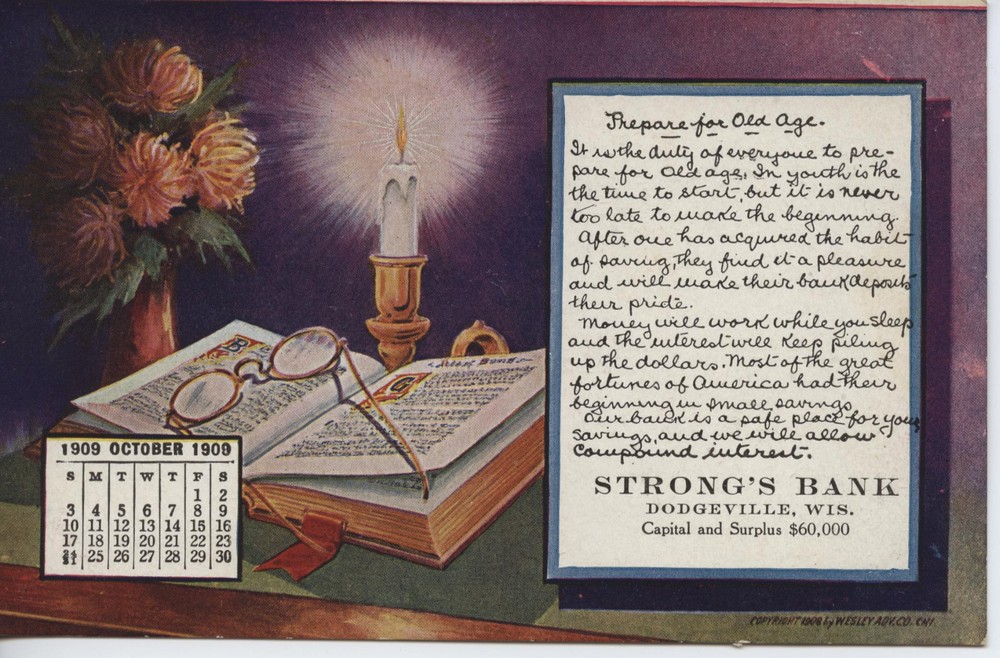 Prepare for Old Age.
It is the duty of everyone to pre-
pare for old age. In youth is the
the time to start, but it is never
too late to make the beginning.
After one has acquired the habit
of saving, they find it a pleasure
and will make their bank deposits
their pride.
Money will work while you sleep
and the interest will keep piling
up the dollars. Most of the great
fortunes of America had their
beginning in small savings
Our bank is a safe place for your
savings, and we will allow
Compound interest.
STRONG'S BANK
DODGEVILLE, WIS.
Capital and Surplus $60,000
1909 OCTOBER 1909
S M T W T F S
1 2
3 4 5 6 7 8 9
10 11 12 13 14 15 16
17 18 19 20 21 22 23
24/31 25 26 27 28 29 30
COPYRIGHT 1908 by WESLEY ADV. CO. CHI.